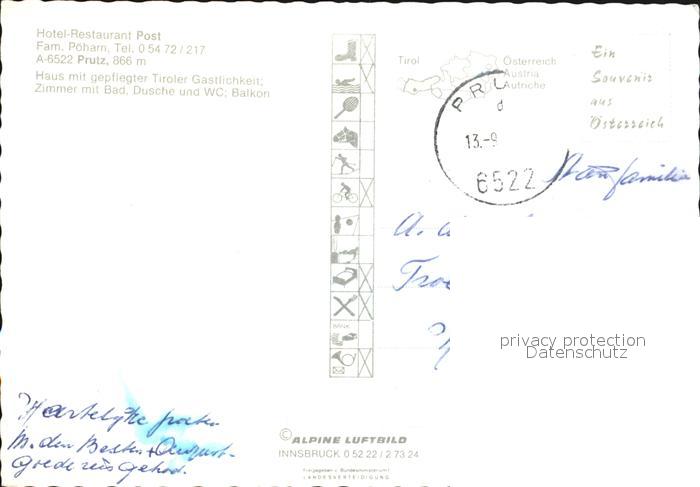 Hotel-Restaurant Post
Fam. Pöham, Tel. 0 54 72 / 217
A-6522 Prutz, 866 m
Haus mit gepflegter Tiroler Gastlichkeit;
Zimmer mit Bad, Dusche und WC; Balkon
Tirol
Österreich
Austria
Autriche
Ein
Souvenir
aus
Österreich
PRU
d
13.-9
6522
familie
A. d
BANK
privacy protection
Datenschutz
Hartelijke groeten
M. den Besten
Goede reis gehad.
© ALPINE LUFTBILD
INNSBRUCK 0 52 22 / 2 73 24
Freigegeben v. Bundesministerium f.
LANDESVERTEIDIGUNG